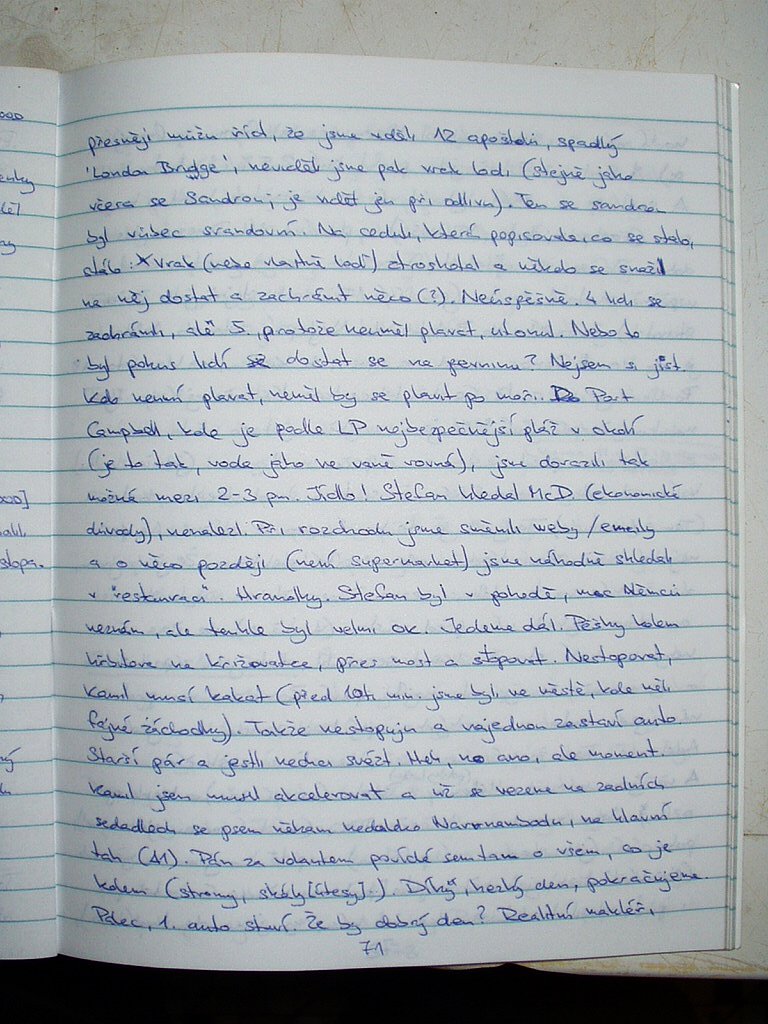 přesněji můžu říct, že jsme viděli 12 apoštolů, spadlý
'London Bridge', neviděli jsme pak vrak lodi (stejně jako
včera se Sandrou; je vidět jen při odlivu). Ten se sandrou
byl vůbec srandovní. Na ceduli, která popisovala, co se stalo,
stálo: Vrak (nebo vlastně loď) ztroskotal a někdo se snažil
na něj dostat a zachránit něco (?). Neúspěšně. 4 lidi se
zachránili, ale 5., protože neuměl plavat, utonul. Nebo to
byl pokus lidí dostat se na pevninu? Nejsem si jist.
Kdo neumí plavat, neměl by se plavit po moři. Port
Campbell, kde je podle LP nejbezpečnější pláž v okolí
(je to tak, voda jako ve vaně rovná), jsme dorazili tak
možná mezi 2-3 pm. Jídlo! Stefan hledal McD (ekonomické
důvody), nenalezl. Při rozchodu jsme směnili weby/emaily
a o něco později (není supermarket) jsme náhodně shledali
v "restauraci". Hranolky. Stefan byl v pohodě, moc Němců
neznám, ale tenhle byl velmi ok. Jedeme dál. Pěšky kolem
hřbitova na křižovatce, přes most a stopovat. Nestopovat,
Kamil musí kakat (před 10ti min. jsme byli ve městě, kde měli
fajné záchodky). Takže nestopuju a najednou zastaví auto
Starší pár a jestli nechci svézt. Heh, no ano, ale moment.
Kamil jsem musel akcelerovat a už se vezeme na zadních
sedadlech se psem někam nedaleko Warrnamboolu, na hlavní
tah (A1). Pán za volantem povídá semtam o všem, co je
kolem (stromy, skály [útesy].). Díky, hezký den, pokračujeme.
Palec, 1. auto staví. Že by dobrý den? Realitní makléř,
71